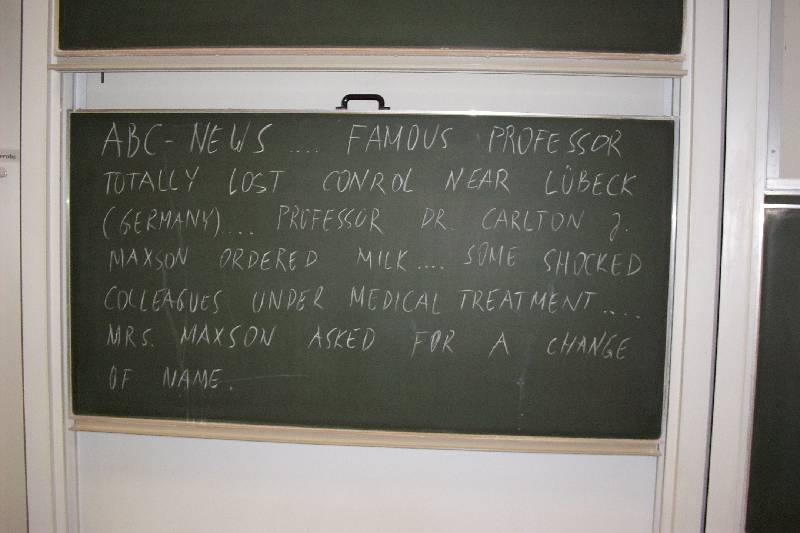 ABC-NEWS .... FAMOUS PROFESSOR
TOTALLY LOST CONROL NEAR LÜBECK
(GERMANY).... PROFESSOR DR. CARLTON J.
MAXSON ORDERED MILK.... SOME SHOCKED
COLLEAGUES UNDER MEDICAL TREATMENT....
MRS. MAXSON ASKED FOR A CHANGE
OF NAME.